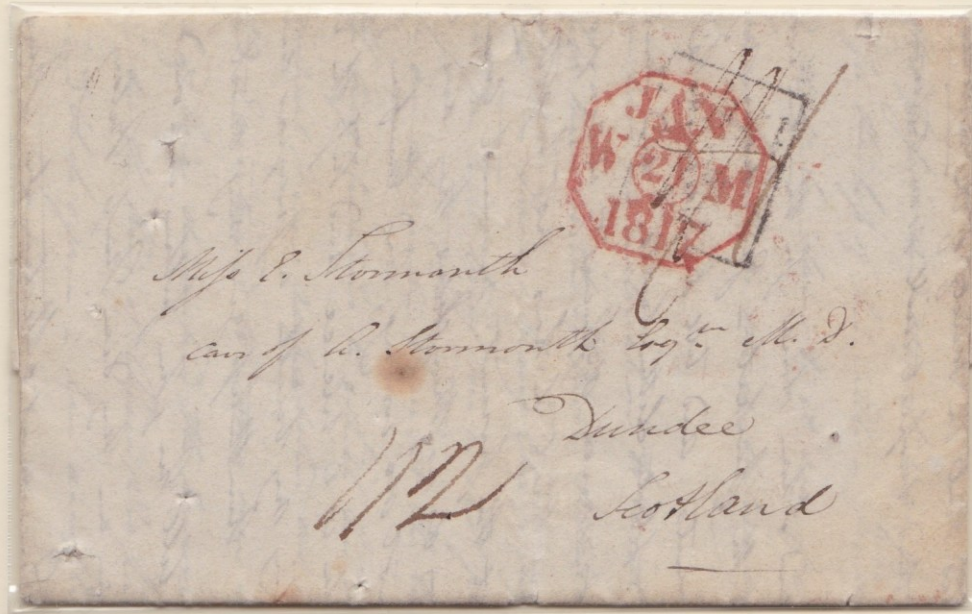 JAN
W 21 M
1817
Miss E. Stormonth
care of A. Stormonth Esqre M. D.
Dundee
Scotland